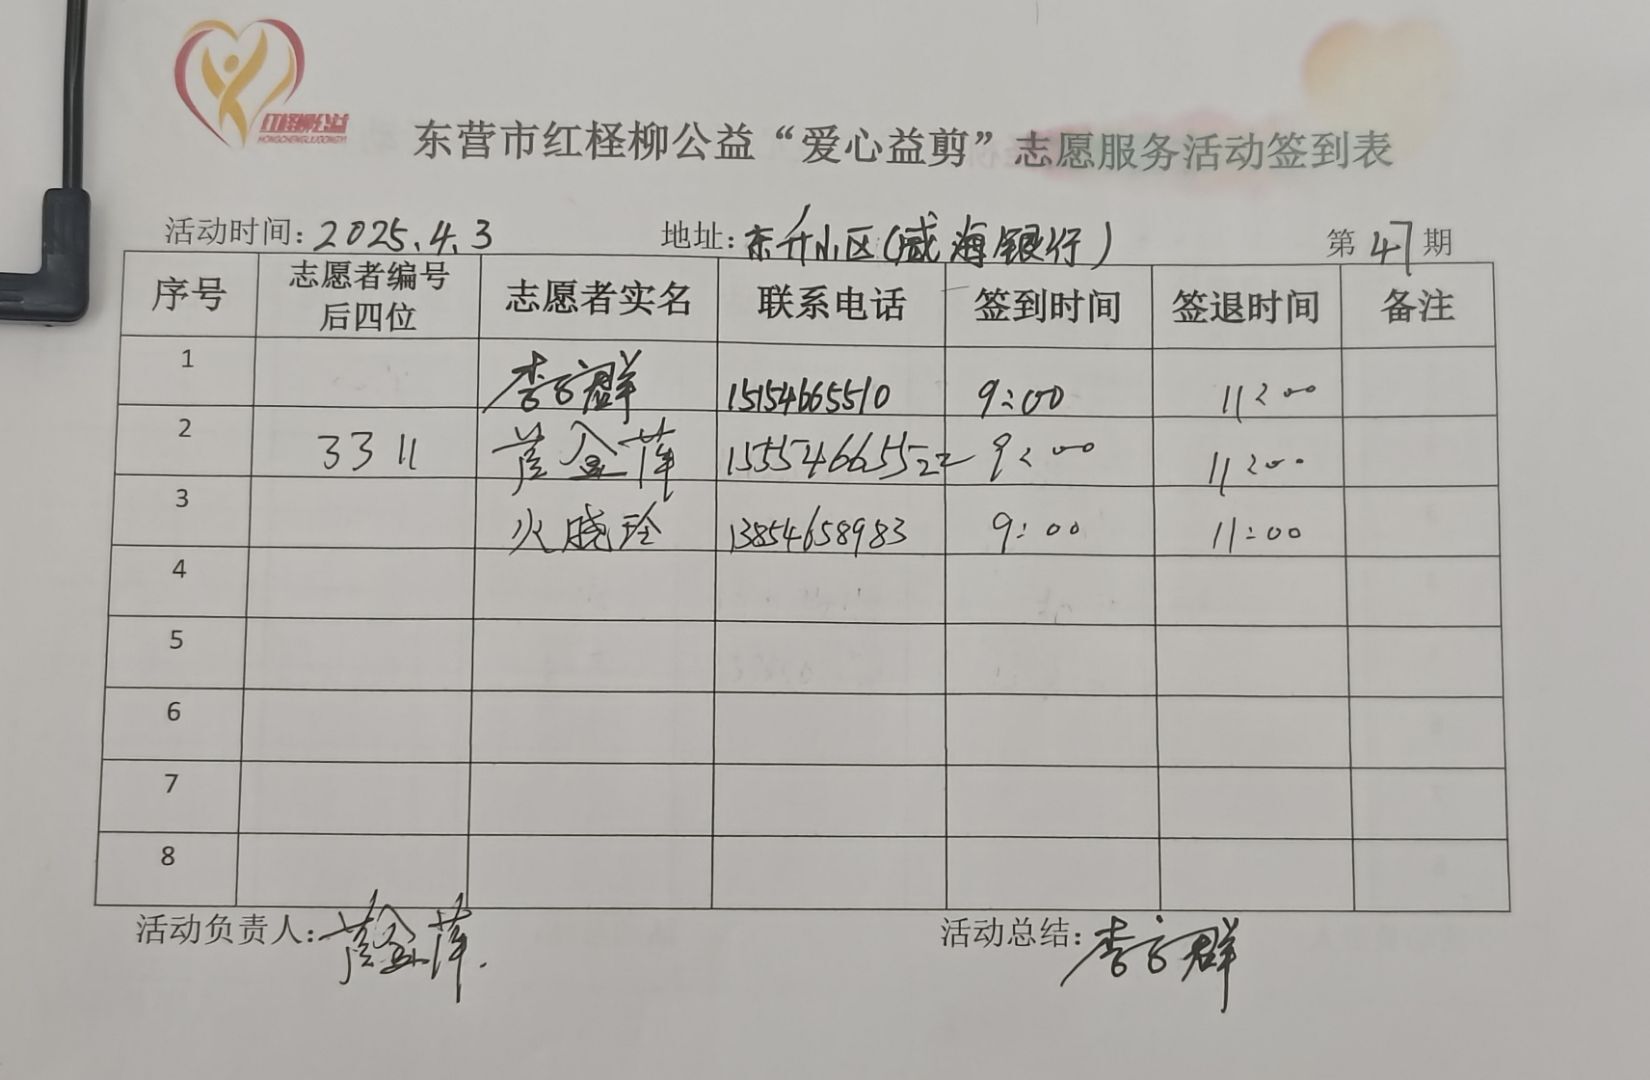 红柽柳公益
HONGCHENGLIUGONGYI
东营市红柽柳公益“爱心益剪”志愿服务活动签到表
活动时间：2025.4.3 地址：东升小区(威海银行) 第47期
序号 志愿者编号后四位 志愿者实名 联系电话 签到时间 签退时间 备注
1 李方群 15154665510 9:00 11:00
2 3311 黄金萍 15554665522 9:00 11:00
3 火晓玲 13854658983 9:00 11:00
4
5
6
7
8
活动负责人：黄金萍. 活动总结：李方群